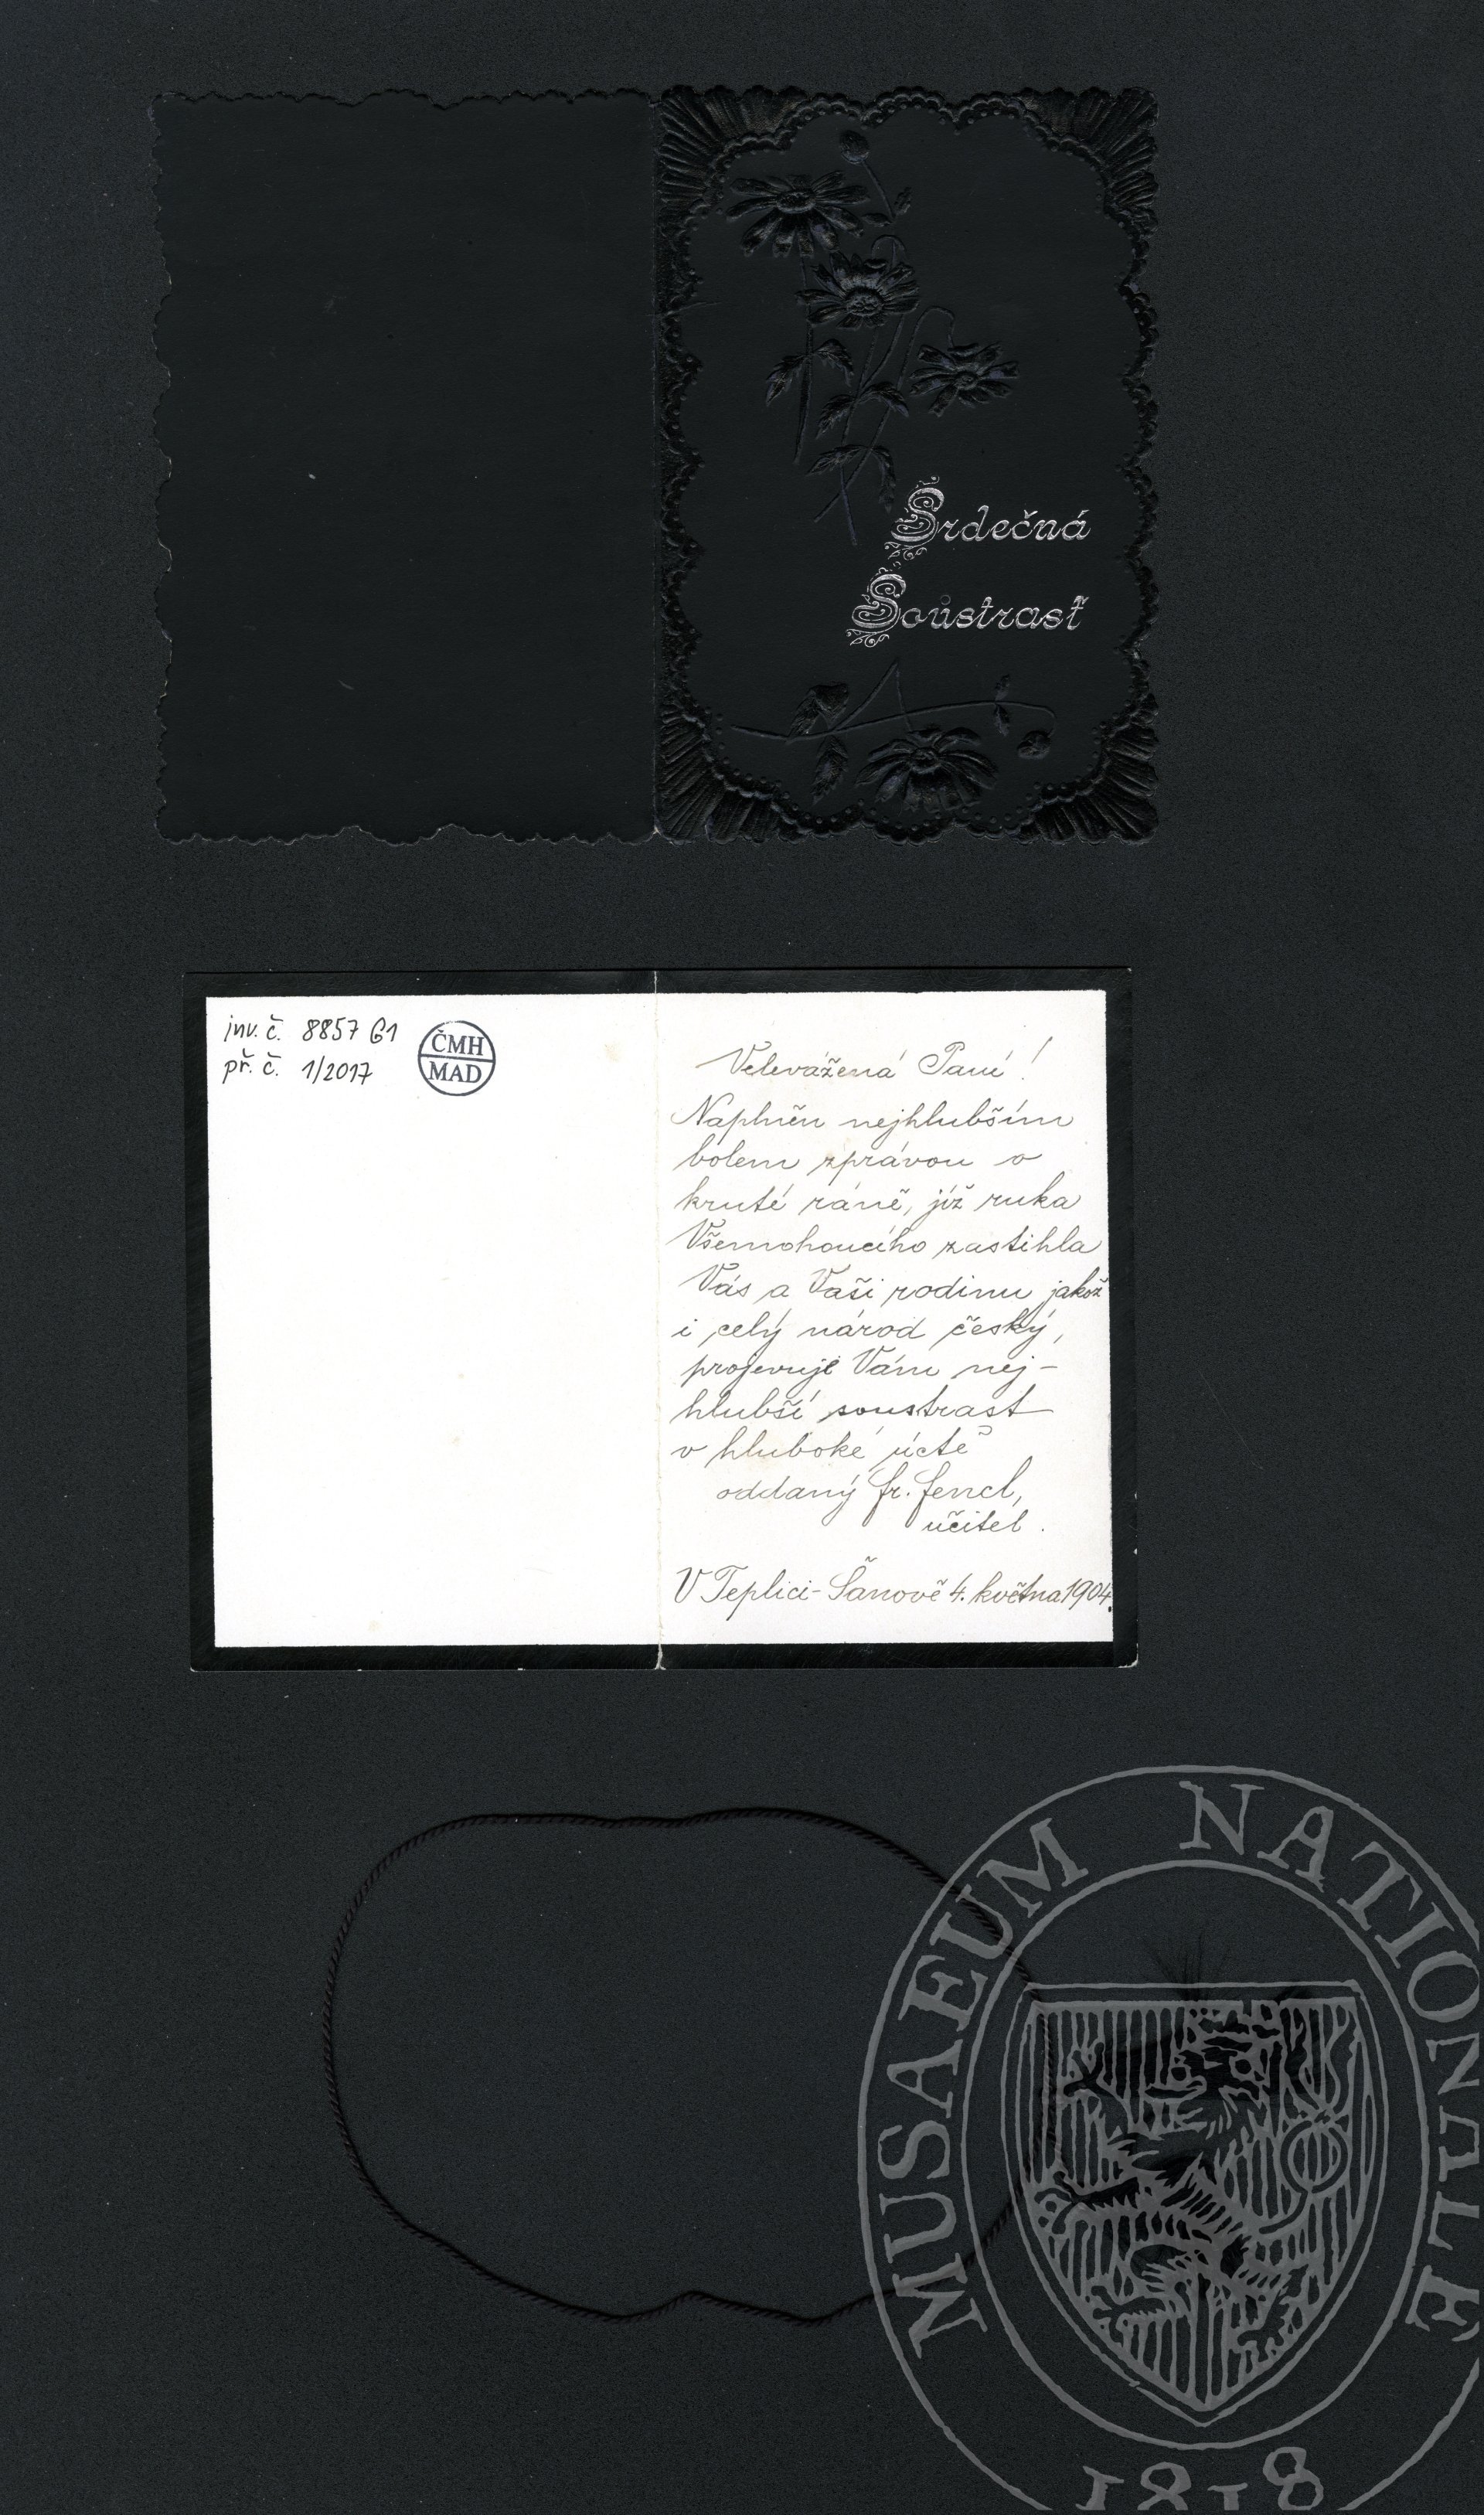 Srdečná
Soustrast
inv. č. 8857 G1
př. č. 1/2017
ČMH
MAD
Velevážená Paní!
Naplněn nejhlubším
bolem zprávou o
kruté ráně, jíž ruka
Všemohoucího zastihla
Vás a Vaši rodinu jakož
i celý národ český,
projevuji Vám nej-
hlubší soustrast
v hluboké úctě
oddaný Fr. Fencl,
učitel.
V Teplici-Šanově 4. května 1904.
MUSAEUM NATIONALE
1818